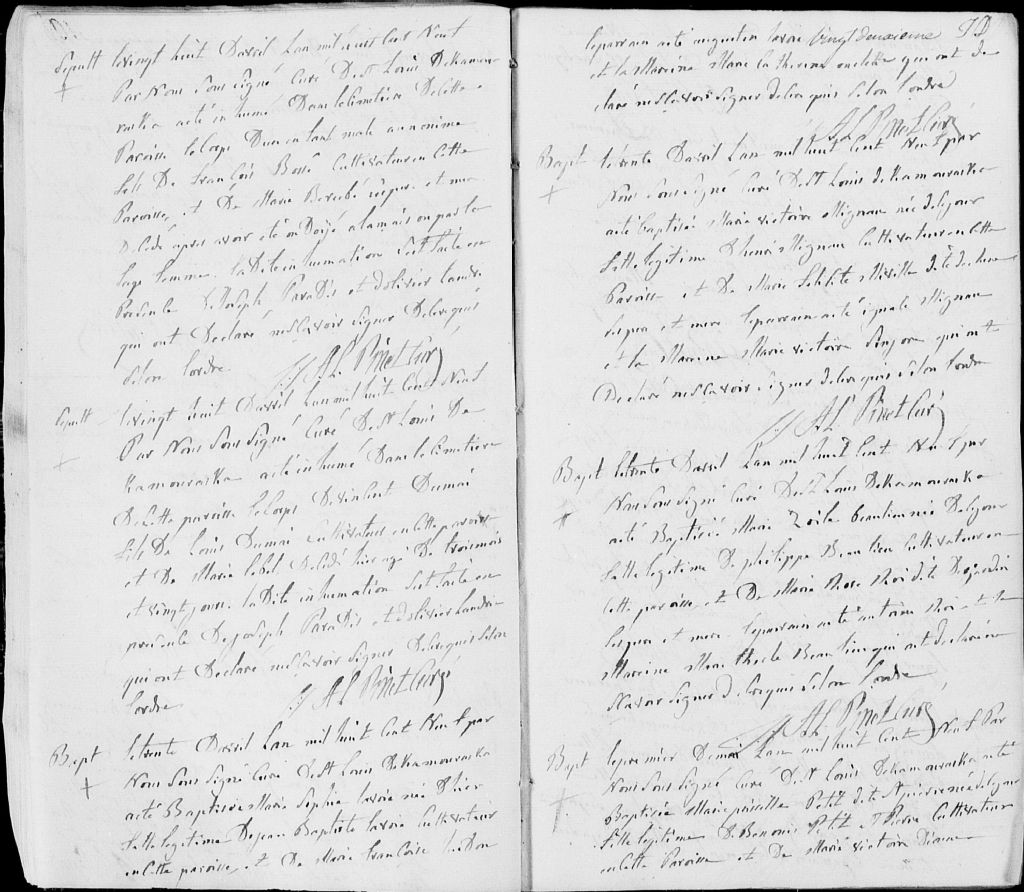 Sepult levingt huit Davril Lan mil huit Cent Neuf
Par Nous Sous Signé Curé De St Louis DeKamou
raska aété inhumé Dans lecimetiere Decette
Paroisse leCorps Dun enfant male annonime
fils De François Bossé Cultivateur en Cette
Paroisse, et De Marie Berubé sespere et mere
Décédé apres avoir été ondoijé alamaison par la
Sage femme. laDite inhumation Sest faite en
Presence DeJoseph ParaDis et dolivier landri
qui ont Declaré neSCavoir Signer Delerequis
Selon lordre
A L Pinet Curé
Sepult levingt huit Davril Lan mil huit Cent Neuf
Par Nous Sous Signé Curé De St Louis De
Kamouraska aété inhumé Dans lecimetiere
DeCette paroisse leCorps DeVincent Dumai
fils De Louis Dumai Cultivateur en Cette paroisse
et De Marie lebel Decédé hier agé De troismois
et vingt jours. laDite inhumation Sest faite en
presence DeJoseph ParaDis et dolivier Landri
qui ont Declaré neSCavoir Signer Delerequis Selon
lordre
A L Pinet Curé
Bapt letrente Davril Lan mil huit Cent Neuf par
Nous Sous Signé Curé De St Louis DeKamouraska
aété Baptisée Marie Sophie lavoie née Dhier
fille legitime DeJean Baptiste lavoie Cultivateur
en Cette paroisse, et De Marie Françoise
leparrain aété augustin lavoie vingt deuxieme
et la Mareine Marie Catherine ouellette qui ont de
claré neSCavoir Signer Delerequis Selon lordre
A L Pinet Curé
Bapt letrente Davril Lan mil huit Cent Neuf par
Nous Sous Signé Curé De St Louis deKamouraska
aété baptisée Marie victoire Mignau née deCejour
fille legitime Dhenri Mignau Cultivateur en Cette
Paroisse et De Marie
Sespere et mere. leparrain aété ignace Mignau
et la Mareine Marie victoire qui ont
Declaré neSCavoir Signer Delerequis Selon lordre
A L Pinet Curé
Bapt letrente Davril Lan mil huit Cent Neuf par
Nous Sous Signé Curé De St Louis DeKamouraska
aété Baptisée Marie Zoïle beaulieu née DeCejour
fille legitime De philippe Beaulieu Cultivateur en
Cette paroisse, et De Marie Rose Roi dite Dejardin
Sespere et mere. leparrain aété antoine Roi et la
Mareine Marie thecle Beaulieu qui ont declaré ne
SCavoir Signer Delerequis Selon lordre
A L Pinet Curé
Bapt lepremier Demai Lan mil huit Cent Neuf Par
Nous Sous Signé Curé De St Louis DeKamouraska aété
Baptisée Marie priscille Petit dite St pierre née deCejour
fille legitime De Benonie Petit St Pierre Cultivateur
en Cette Paroisse et De Marie victoire